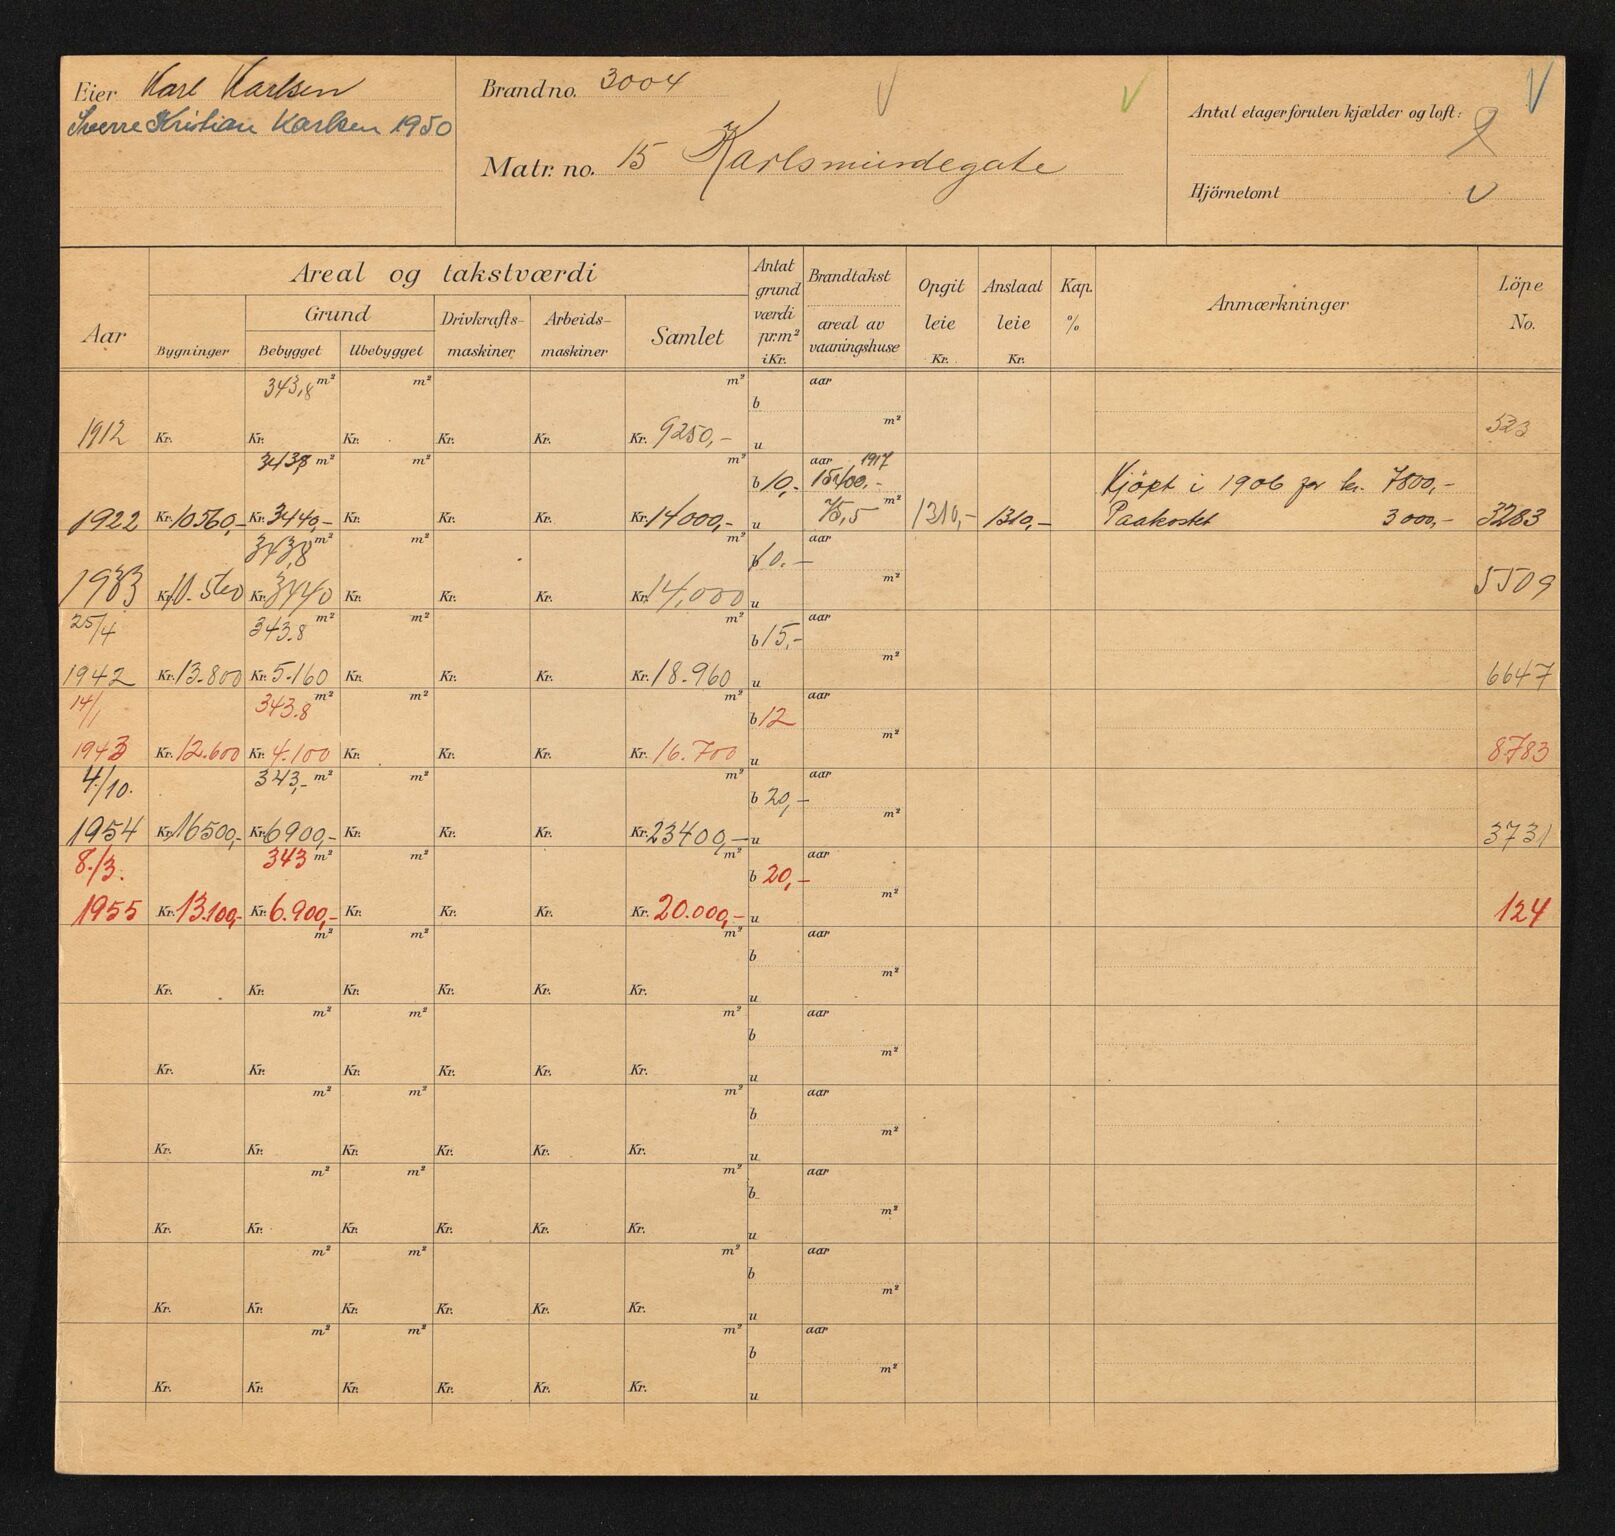 Eier Karl Karlsen
Sverre Kristian Karlsen 1950
Brand no. 3004
Matr. no. 15 Karlsmindegate
Antal etager foruten kjælder og loft: 2
Hjörnetomt
Aar
Areal og takstværdi
Bygninger
Grund
Bebygget Ubebygget
Drivkrafts-
maskiner
Arbeids-
maskiner
Samlet
Antat
grund
værdi
pr. m²
i Kr.
Brandtakst
areal av
vaaningshuse
Opgit
leie
Kr.
Anslaat
leie
Kr.
Kap.
%
Anmærkninger
Löpe
No.
343,8 m² m² m² aar
b
m²
1912 Kr. Kr. Kr. Kr. Kr. Kr. 9250,- u 523
343,8 m² m² m² aar 1917
b 10,- 15400,- Kjöpt i 1906 for kr. 7800,-
m²
1922 Kr. 10560,- Kr. 3440,- Kr. Kr. Kr. Kr. 14000,- u 75,5 1310,- 1310,- Paakostet 3000,- 3283
343,8 m² m² m² aar
b 10.-
m²
1933 Kr. 10.560 Kr. 3440 Kr. Kr. Kr. Kr. 14,000 u 5509
25/4 343.8 m² m² m² aar
b 15,-
m²
1942 Kr. 13.800 Kr. 5.160 Kr. Kr. Kr. Kr. 18.960 u 6647
14/1 343.8 m² m² m² aar
b 12
m²
1943 Kr. 12.600 Kr. 4.100 Kr. Kr. Kr. Kr. 16.700 u 8783
4./10. 343,- m² m² m² aar
b 20,-
m²
1954 Kr. 16500,- Kr. 6900,- Kr. Kr. Kr. Kr. 23400,- u 3731
8./3. 343 m² m² m² aar
b 20,-
m²
1955 Kr. 13.100,- Kr. 6.900,- Kr. Kr. Kr. Kr. 20.000,- u 124
m² m² m² aar
b
m²
Kr. Kr. Kr. Kr. Kr. Kr. u
m² m² m² aar
b
m²
Kr. Kr. Kr. Kr. Kr. Kr. u
m² m² m² aar
b
m²
Kr. Kr. Kr. Kr. Kr. Kr. u
m² m² m² aar
b
m²
Kr. Kr. Kr. Kr. Kr. Kr. u
m² m² m² aar
b
m²
Kr. Kr. Kr. Kr. Kr. Kr. u
m² m² m² aar
b
m²
Kr. Kr. Kr. Kr. Kr. Kr. u